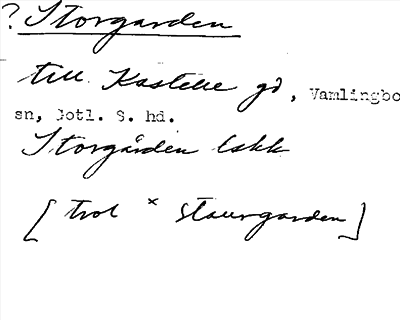 ? Storgarden
till Kastelle gd, Vamlingbo
sn, Gotl. S. hd.
Storgården lskk
[trol × staurgarden]